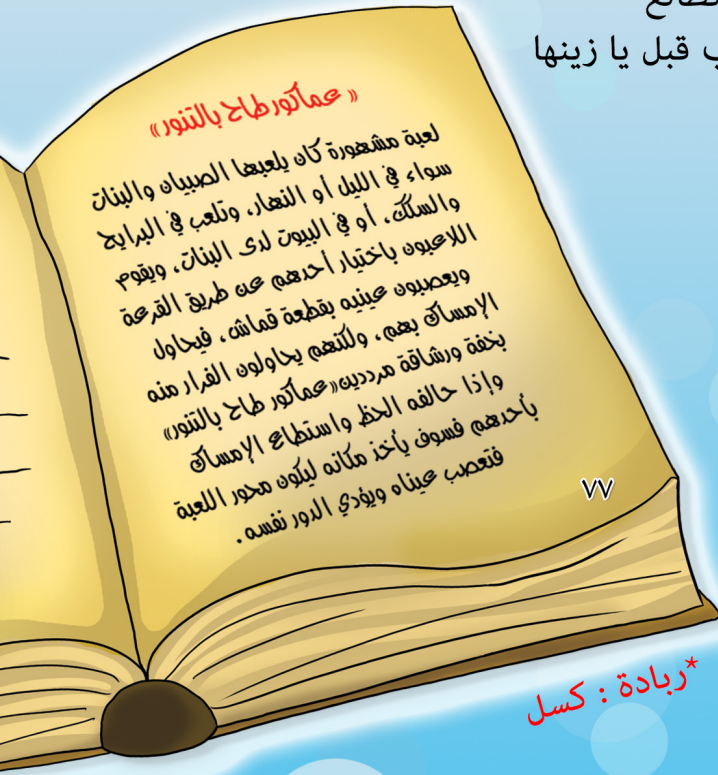 قبل يا زينها
«عماكور طاح بالتنور»
لعبة مشهورة كان يلعبها الصبيان والبنات
سواء في الليل أو النهار، وتلعب في البرايح
والسكك، أو في البيوت لدى البنات، ويقوم
اللاعبون باختيار أحدهم عن طريق القرعة
ويعصبون عينيه بقطعة قماش، فيحاول
الإمساك بهم، ولكنهم يحاولون الفرار منه
بخفة ورشاقة مرددين «عماكور طاح بالتنور»
وإذا حالفه الحظ واستطاع الإمساك
بأحدهم فسوف يأخذ مكانه ليكون محور اللعبة
فتعصب عيناه ويؤدي الدور نفسه.
٧٧
*ربادة : كسل